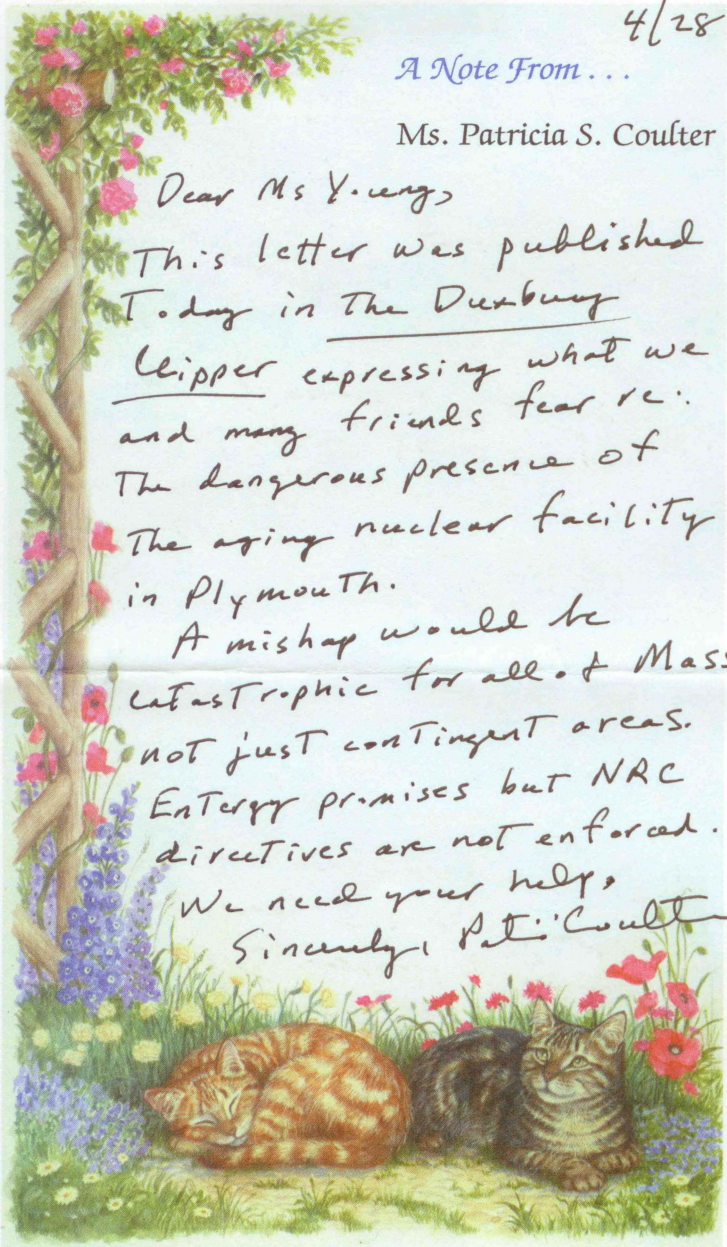 4/28
A Note From . . .
Ms. Patricia S. Coulter
Dear Ms Young,
This letter was published
Today in The Duxbury
Clipper expressing what we
and many friends fear re:
The dangerous presence of
The aging nuclear facility
in Plymouth.
A mishap would be
catastrophic for all of Mass
not just contingent areas.
Entergy promises but NRC
directives are not enforced.
We need your help.
Sincerely, Patti Coulter